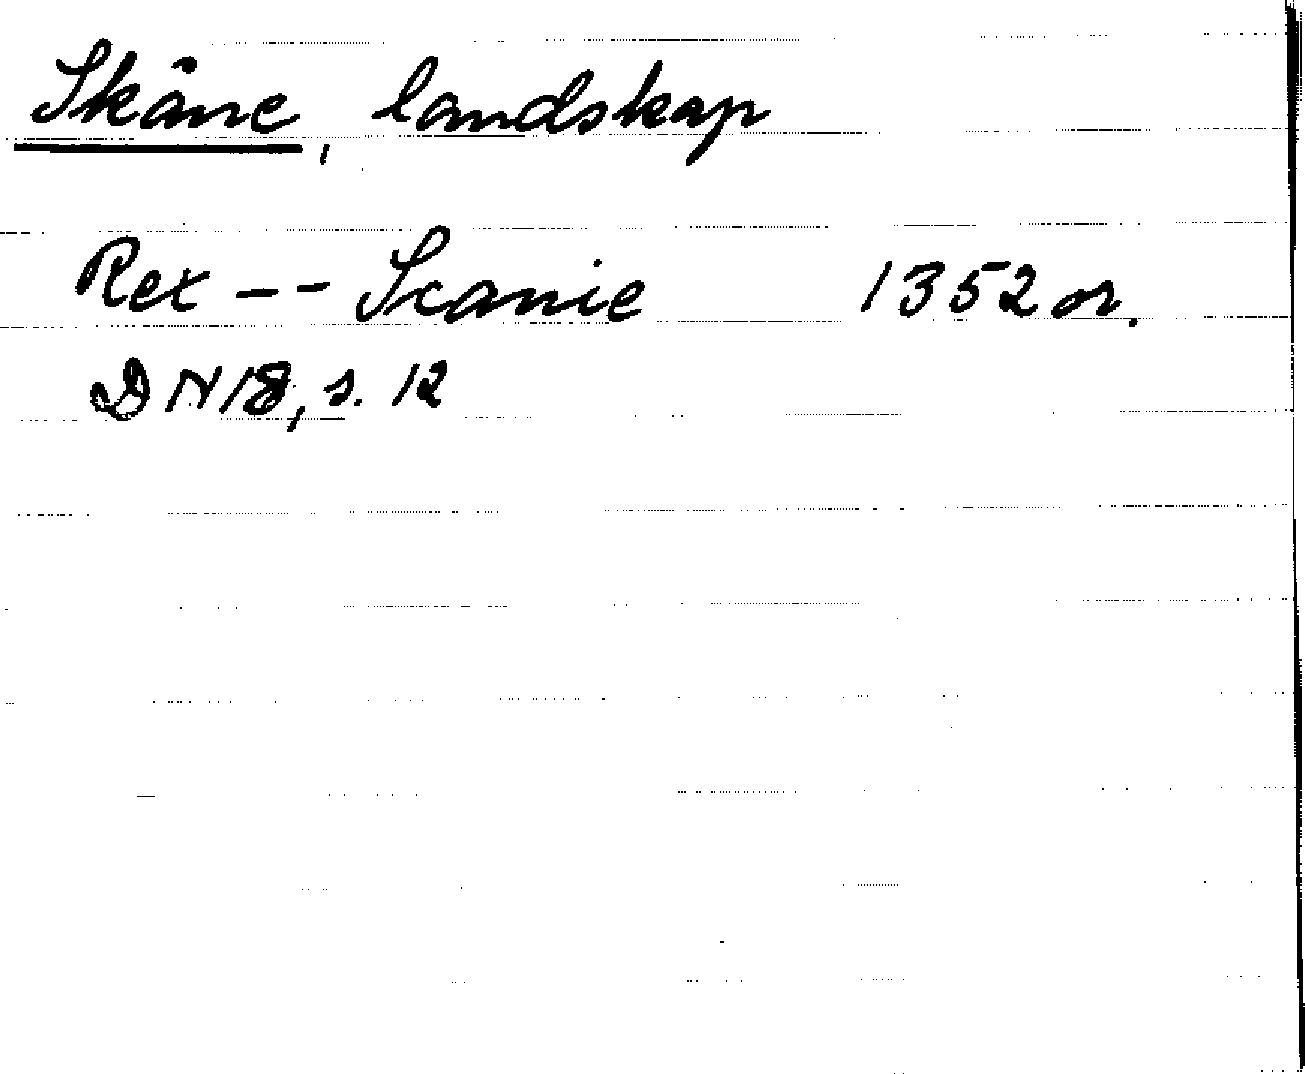 Skåne, landskap
Rex -- Scanie 1352 or.
DN 18, s. 12